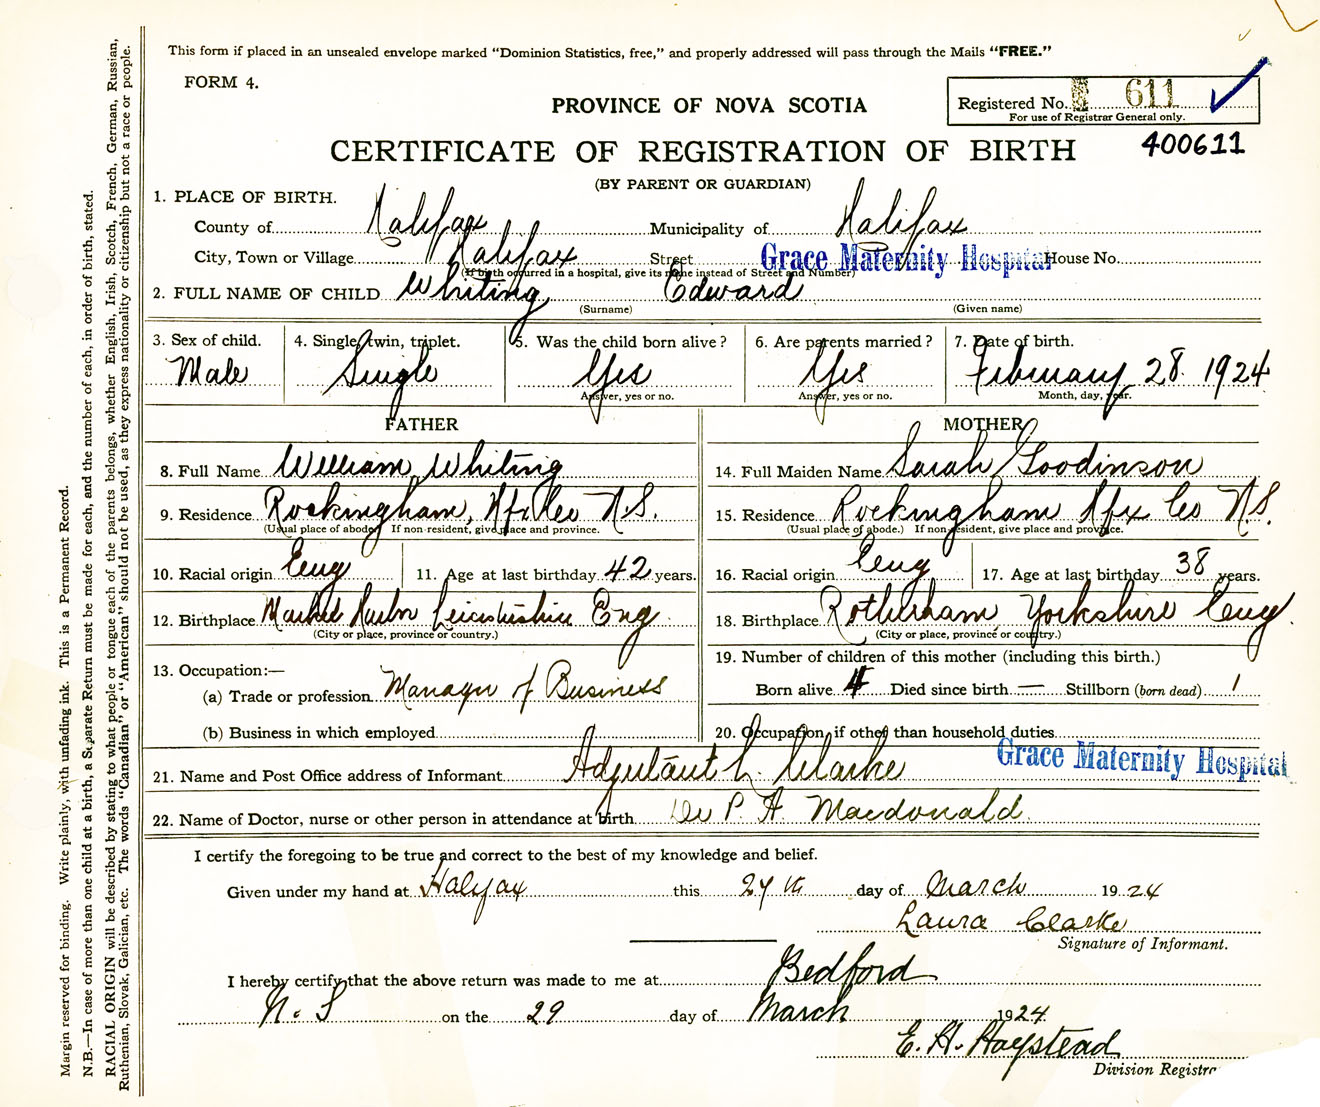 This form if placed in an unsealed envelope marked “Dominion Statistics, free,” and properly addressed will pass through the Mails “FREE.”
FORM 4.
PROVINCE OF NOVA SCOTIA
Registered No. 611
For use of Registrar General only.
CERTIFICATE OF REGISTRATION OF BIRTH
400611
(BY PARENT OR GUARDIAN)
1. PLACE OF BIRTH.
County of Halifax Municipality of Halifax
City, Town or Village Halifax Street Grace Maternity Hospital House No.
(If birth occurred in a hospital, give its name instead of Street and Number)
2. FULL NAME OF CHILD Whiting Edward
(Surname) (Given name)
3. Sex of child. 4. Single, twin, triplet. 5. Was the child born alive? 6. Are parents married? 7. Date of birth.
Male Single Yes Yes February 28 1924
Answer, yes or no. Answer, yes or no. Month, day, year.
FATHER
8. Full Name William Whiting
9. Residence Rockingham, Hfx Co N.S.
(Usual place of abode.) If non-resident, give place and province.
10. Racial origin Eng 11. Age at last birthday 42 years.
12. Birthplace Market Leicestershire Eng
(City or place, province or country.)
13. Occupation:—
(a) Trade or profession Manager of Business
(b) Business in which employed
MOTHER
14. Full Maiden Name Sarah Goodinson
15. Residence Rockingham Hfx Co N.S.
(Usual place of abode.) If non-resident, give place and province.
16. Racial origin Eng 17. Age at last birthday 38 years.
18. Birthplace Rotherham Yorkshire Eng.
(City or place, province or country.)
19. Number of children of this mother (including this birth.)
Born alive 4 Died since birth — Stillborn (born dead) 1
20. Occupation, if other than household duties
21. Name and Post Office address of Informant Adjutant L. Clarke Grace Maternity Hospital
22. Name of Doctor, nurse or other person in attendance at birth Dr P. A. Macdonald
I certify the foregoing to be true and correct to the best of my knowledge and belief.
Given under my hand at Halifax this 27th day of March 1924
Laura Clarke
Signature of Informant.
I hereby certify that the above return was made to me at Bedford
N. S on the 29 day of March 1924
E. H. Haystead
Division Registrar
Margin reserved for binding. Write plainly, with unfading ink. This is a Permanent Record.
N.B.—In case of more than one child at a birth, a Separate Return must be made for each, and the number of each, in order of birth, stated.
RACIAL ORIGIN will be described by stating to what people or tongue each of the parents belongs, whether English, Irish, Scotch, French, German, Russian,
Ruthenian, Slovak, Galician, etc. The words “Canadian” or “American” should not be used, as they express nationality or citizenship but not a race or people.